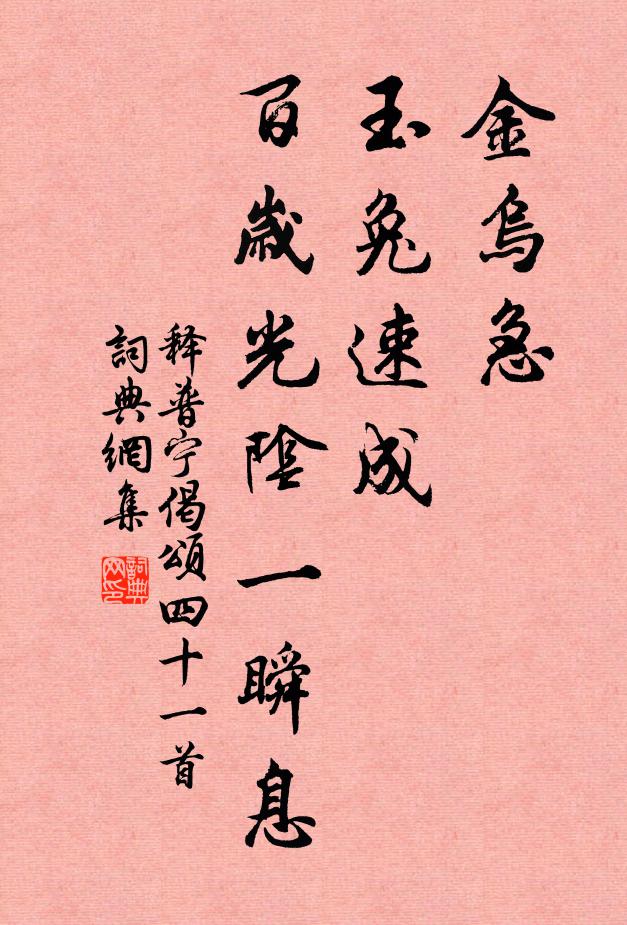 金烏急
玉兔速成
百歲光陰一瞬息
释普宁偈頌四十一首
詞典網集
詞典网印